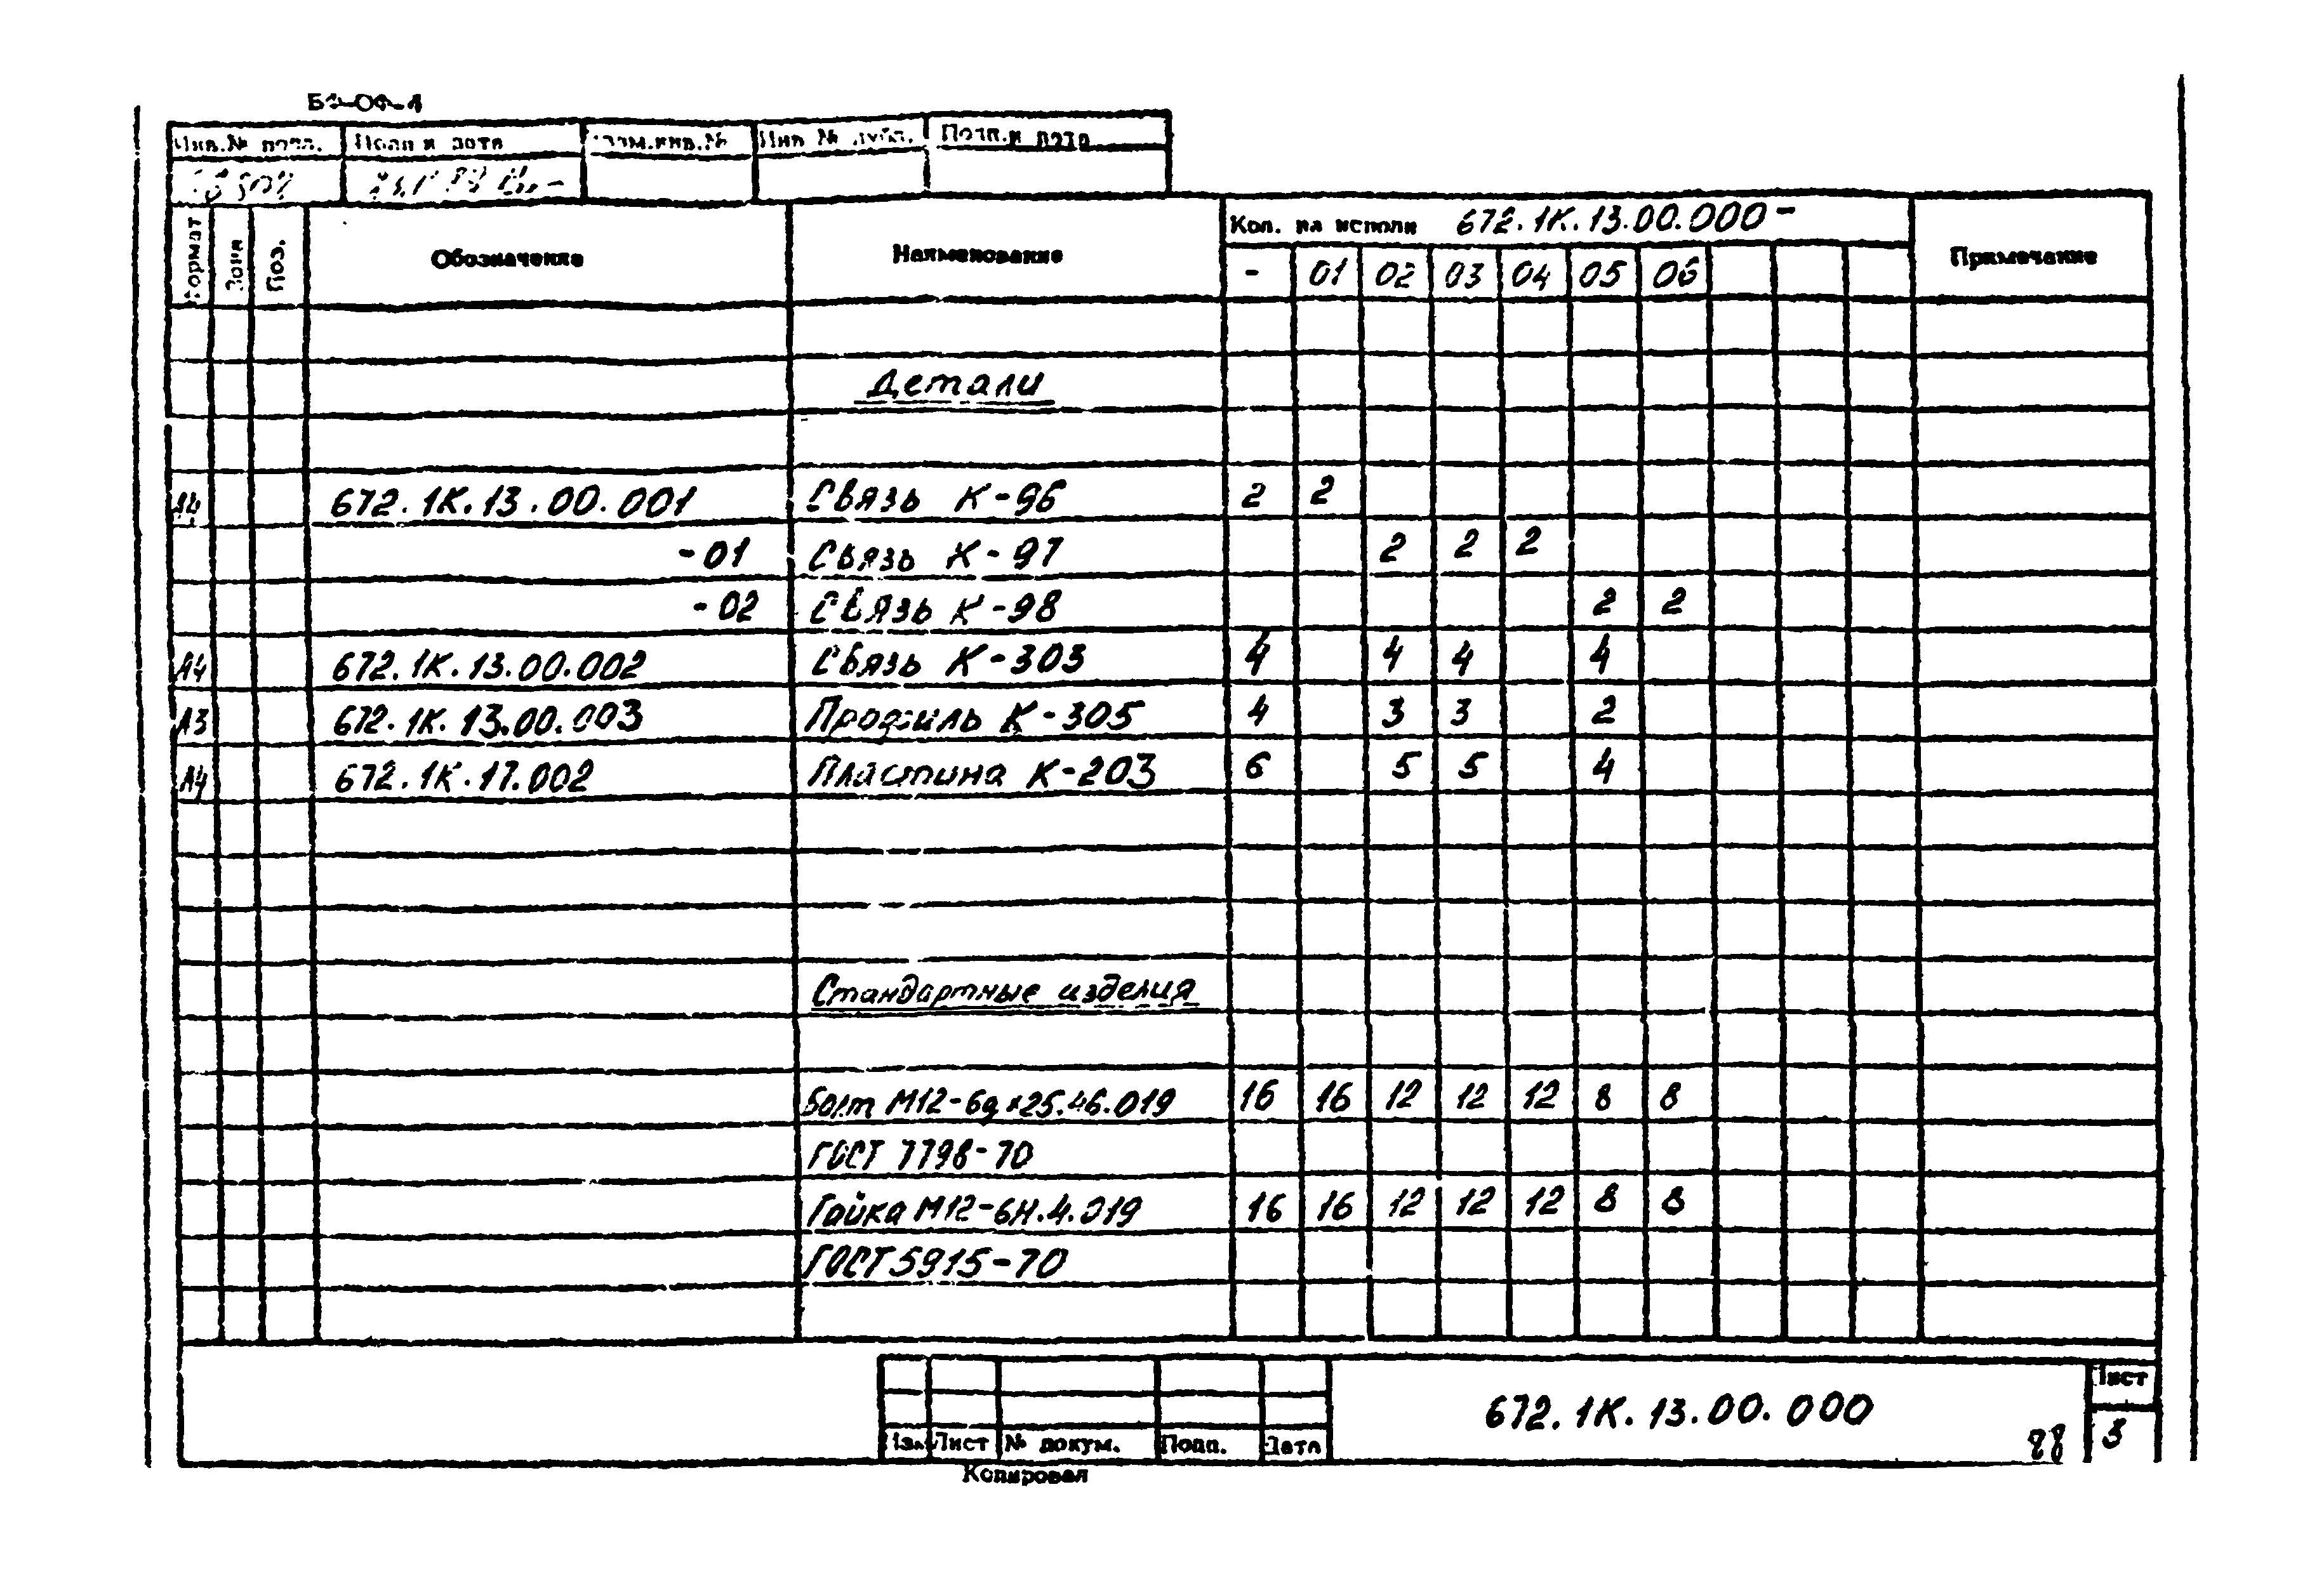 Инв.№ подл. Подп и дата Взам.инв.№ Инв № дубл. Подп.и дата
Формат Зона Поз. Обозначение Наименование Кол. на исполн 672.1К.13.00.000- Примечание
- 01 02 03 04 05 06
Детали
А4 672.1К.13.00.001 Связь К-96 2 2
-01 Связь К-97 2 2 2
-02 Связь К-98 2 2
А4 672.1К.13.00.002 Связь К-303 4 4 4 4
А3 672.1К.13.00.003 Профиль К-305 4 3 3 2
А4 672.1К.17.002 Пластина К-203 6 5 5 4
Стандартные изделия
Болт М12-6g×25.46.019 16 16 12 12 12 8 8
ГОСТ 7798-70
Гайка М12-6Н.4.019 16 16 12 12 12 8 8
ГОСТ 5915-70
672.1К.13.00.000 Лист
Изм Лист № докум. Подп. Дата 88 3
Копировал